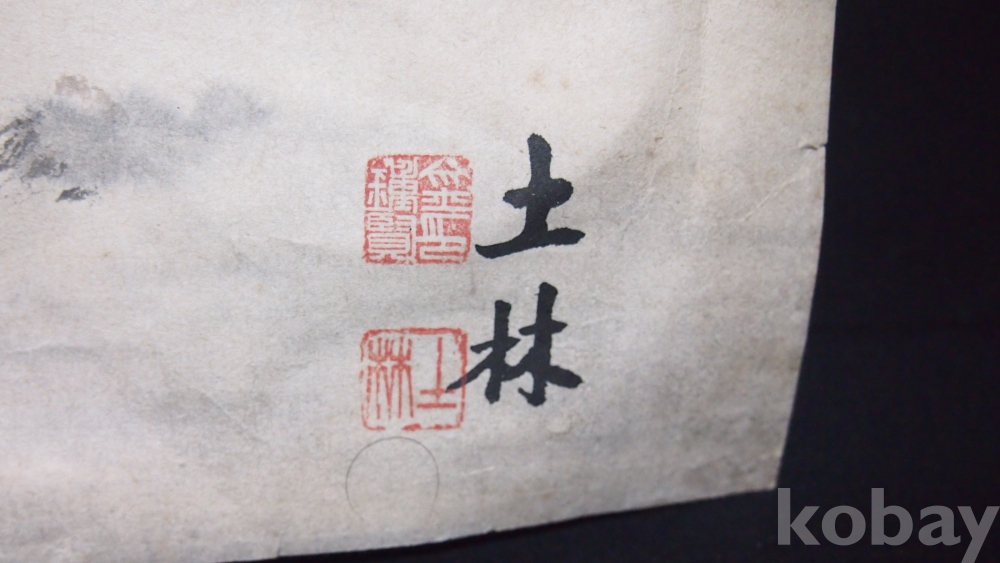 土林
土林
kobay